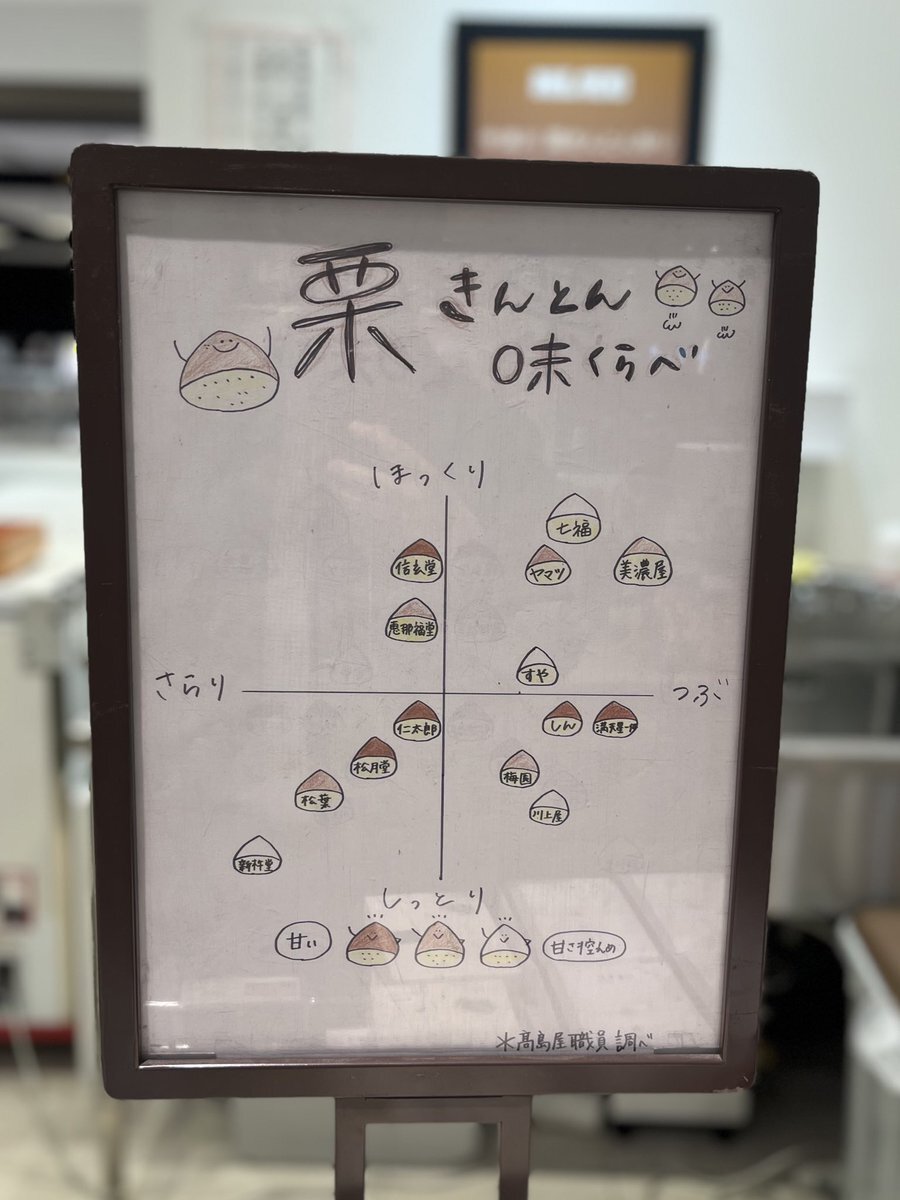 栗きんとん
味くらべ
ほっくり
七福
信玄堂
ヤマツ
美濃屋
恵那福堂
すや
さらり
つぶ
仁太郎
しん
満天星一休
松月堂
梅園
松葉
川上屋
新杵堂
しっとり
甘い
甘さ控えめ
*髙島屋職員調べ